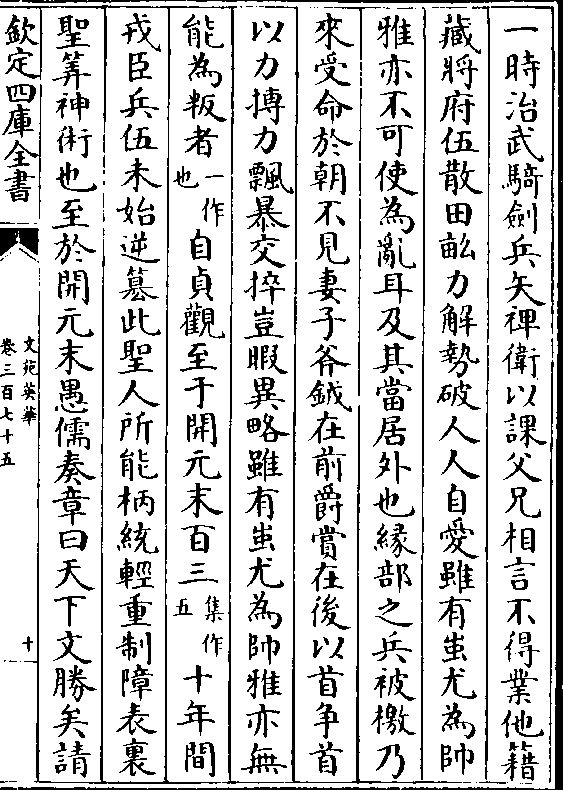 一時治武騎劍兵矢禆衛以課父兄相言不得業他籍
藏將府伍散田畝力解勢破人人自愛雖有蚩尤為帥
雅亦不可使為亂耳及其當居外也緣部之兵被檄乃
來受命於朝不見妻子斧鉞在前爵賞在後以首争首
以力搏力飄暴交捽豈暇異略雖有蚩尤為帥雅亦無
能為叛者一作也自貞觀至于開元末百三集作五十年間
戎臣兵伍未始逆簒此聖人所能柄統輕重制障表裏
聖筭神術也至於開元末愚儒奏章曰天下文勝矣請
欽定四庫全書
文苑英華
卷三百七十五
十